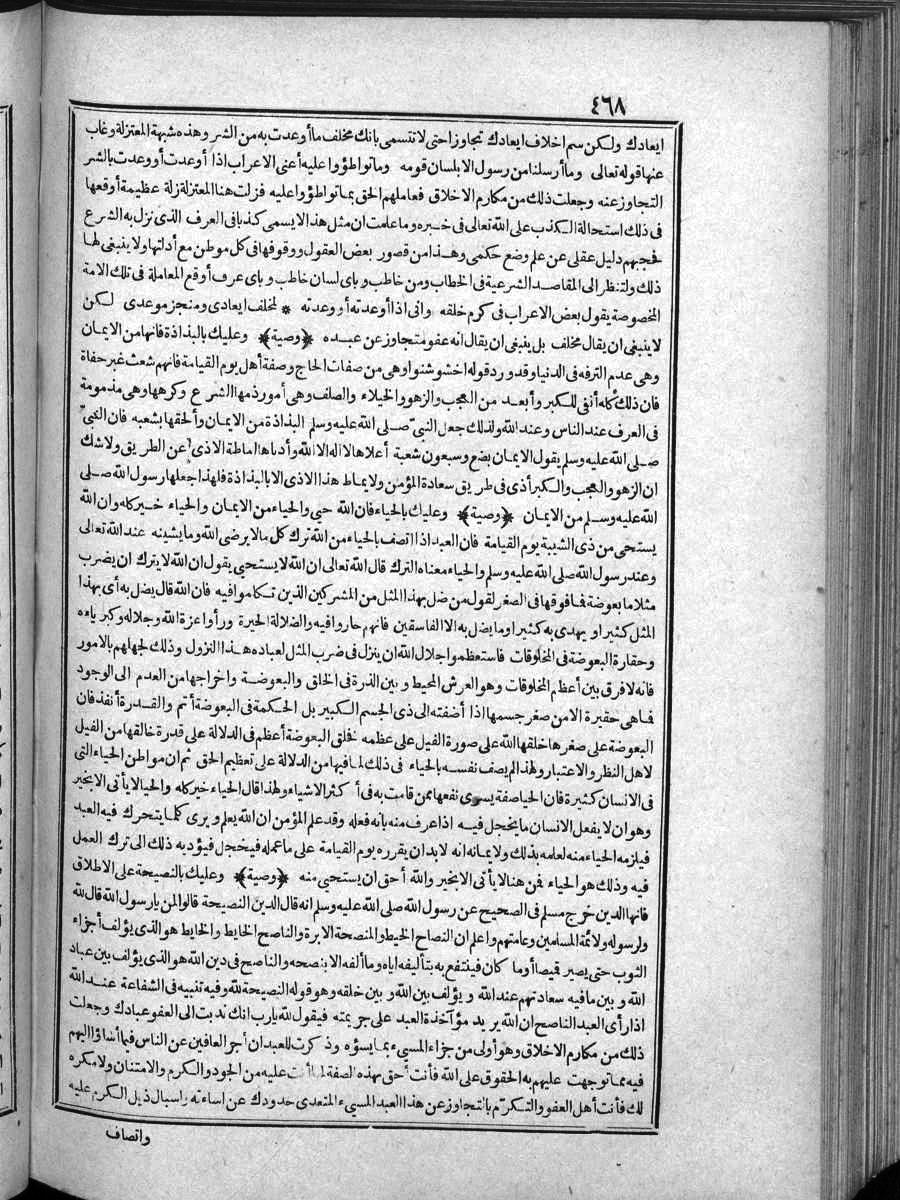 ٤٦٨
ايعادك ولكن سم اخلاف ايعادك تجاوزا حتى لا تتسمى بانك مخلف ما أوعدت به من الشر وهذه شبهة المعتزلة وغاب
عنها قوله تعالى وما أرسلنا من رسول الا بلسان قومه وما تواطؤا عليه أعنى الاعراب اذا أوعدت أو وعدت بالشر
التجاوز عنه وجعلت ذلك من مكارم الاخلاق فعاملهم الحق بما تواطؤا عليه فزلت هنا المعتزلة زلة عظيمة أوقعها
فى ذلك استحالة الكذب على الله تعالى فى خبره وما علمت ان مثل هذا لا يسمى كذبا فى العرف الذى نزل به الشرع
فحجبهم دليل عقلى عن علم وضع حكمى وهذا من قصور بعض العقول ووقوفها فى كل موطن مع أدلتها ولا ينبغى لها
ذلك ولتنظر الى المقاصد الشرعية فى الخطاب ومن خاطب وبأى لسان خاطب وبأى عرف أوقع المعاملة فى تلك الامة
المخصوصة يقول بعض الاعراب فى كرم خلقه وانى اذا أوعدته أو وعدته * لمخلف ايعادى ومنجز موعدى لكن
لا ينبغى ان يقال مخلف بل ينبغى ان يقال انه عفو متجاوز عن عبده ﴿وصية﴾ وعليك بالبذاذة فانها من الايمان
وهى عدم الترفه فى الدنيا وقد ورد قوله اخشوشنوا وهى من صفات الحاج وصفة أهل يوم القيامة فانهم شعث غبر حفاة
فان ذلك كله أنفى للكبر وأبعد من العجب والزهو والخيلاء والصلف وهى أمور ذمها الشرع وكرهها وهى مذمومة
فى العرف عند الناس وعند الله ولذلك جعل النبى صلى الله عليه وسلم البذاذة من الايمان وألحقها بشعبه فان النبى
صلى الله عليه وسلم يقول الايمان بضع وسبعون شعبة أعلاها لا اله الا الله وأدناها اماطة الاذى عن الطريق ولا شك
ان الزهو والعجب والكبر أذى فى طريق سعادة المؤمن ولا يماط هذا الاذى الا بالبذاذة فلهذا جعلها رسول الله صلى
الله عليه وسلم من الايمان ﴿وصية﴾ وعليك بالحياء فان الله حيى والحياء من الايمان والحياء خير كله وان الله
يستحى من ذى الشيبة يوم القيامة فان العبد اذا اتصف بالحياء من الله ترك كل ما لا يرضى الله وما يشينه عند الله تعالى
وعند رسول الله صلى الله عليه وسلم والحياء معناه الترك قال الله تعالى ان الله لا يستحيى يقول ان الله لا يترك ان يضرب
مثلا ما بعوضة فما فوقها فى الصغر لقول من ضل بهذا المثل من المشركين الذين تكلموا فيه فان الله قال يضل به أى بهذا
المثل كثيرا ويهدى به كثيرا وما يضل به الا الفاسقين فانهم حاروا فيه والضلالة الحيرة ورأوا عزة الله وجلاله وكبرياءه
وحقارة البعوضة فى المخلوقات فاستعظموا جلال الله ان ينزل فى ضرب المثل لعباده هذا النزول وذلك لجهلهم بالامور
فانه لا فرق بين أعظم المخلوقات وهو العرش المحيط وبين الذرة فى الخلق والبعوضة واخراجها من العدم الى الوجود
فما هى حقيرة الا من صغر جسمها اذا أضفته الى ذى الجسم الكبير بل الحكمة فى البعوضة أتم والقدرة أنفذ فان
البعوضة على صغرها خلقها الله على صورة الفيل على عظمه فخلق البعوضة أعظم فى الدلالة على قدرة خالقها من الفيل
لاهل النظر والاعتبار ولهذا لم يصف نفسه بالحياء فى ذلك لما فيها من الدلالة على تعظيم الحق ثم ان مواطن الحياء التى
فى الانسان كثيرة فان الحيا صفة يسرى نفعها ممن قامت به فى أكثر الاشياء ولهذا قال الحياء خير كله والحيا لا يأتى الا بخير
وهو ان لا يفعل الانسان ما يخجل فيه اذا عرف منه بانه فعله وقد علم المؤمن ان الله يعلم ويرى كلما يتحرك فيه العبد
فيلزمه الحياء منه لعلمه بذلك ولايمانه انه لا بد ان يقرره يوم القيامة على ما عمله فيخجل فيؤديه ذلك الى ترك العمل
فيه وذلك هو الحياء فمن هنا لا يأتى الا بخير والله أحق ان يستحيى منه ﴿وصية﴾ وعليك بالنصيحة على الاطلاق
فانها الدين خرج مسلم فى الصحيح عن رسول الله صلى الله عليه وسلم انه قال الدين النصيحة قالوا لمن يا رسول الله قال لله
ولرسوله ولائمة المسلمين وعامتهم واعلم ان النصاح الخيط والمنصحة الابرة والناصح الخايط والخايط هو الذى يؤلف أجزاء
الثوب حتى يصير قميصا أو ما كان فينتفع به بتأليفه اياه وما ألفه الا بنصحه والناصح فى دين الله هو الذى يؤلف بين عباد
الله وبين ما فيه سعادتهم عند الله ويؤلف بين الله وبين خلقه وهو قوله النصيحة لله وفيه تنبيه فى الشفاعة عند الله
اذا رأى العبد الناصح ان الله يريد مؤاخذة العبد على جريمته فيقول لله يارب انك ندبت الى العفو عبادك وجعلت
ذلك من مكارم الاخلاق وهو أولى من جزاء المسىء بما يسؤه وذكرت للعبد ان أجر العافين عن الناس فيما أساؤا اليهم
فيه مما توجهت عليهم به الحقوق على الله فأنت أحق بهذه الصفة لما أنت عليه من الجود والكرم والامتنان ولا مكره
لك فأنت أهل العفو والتكرم بالتجاوز عن هذا العبد المسىء المتعدى حدودك عن اساءته واسبال ذيل الكرم عليه
واتصاف